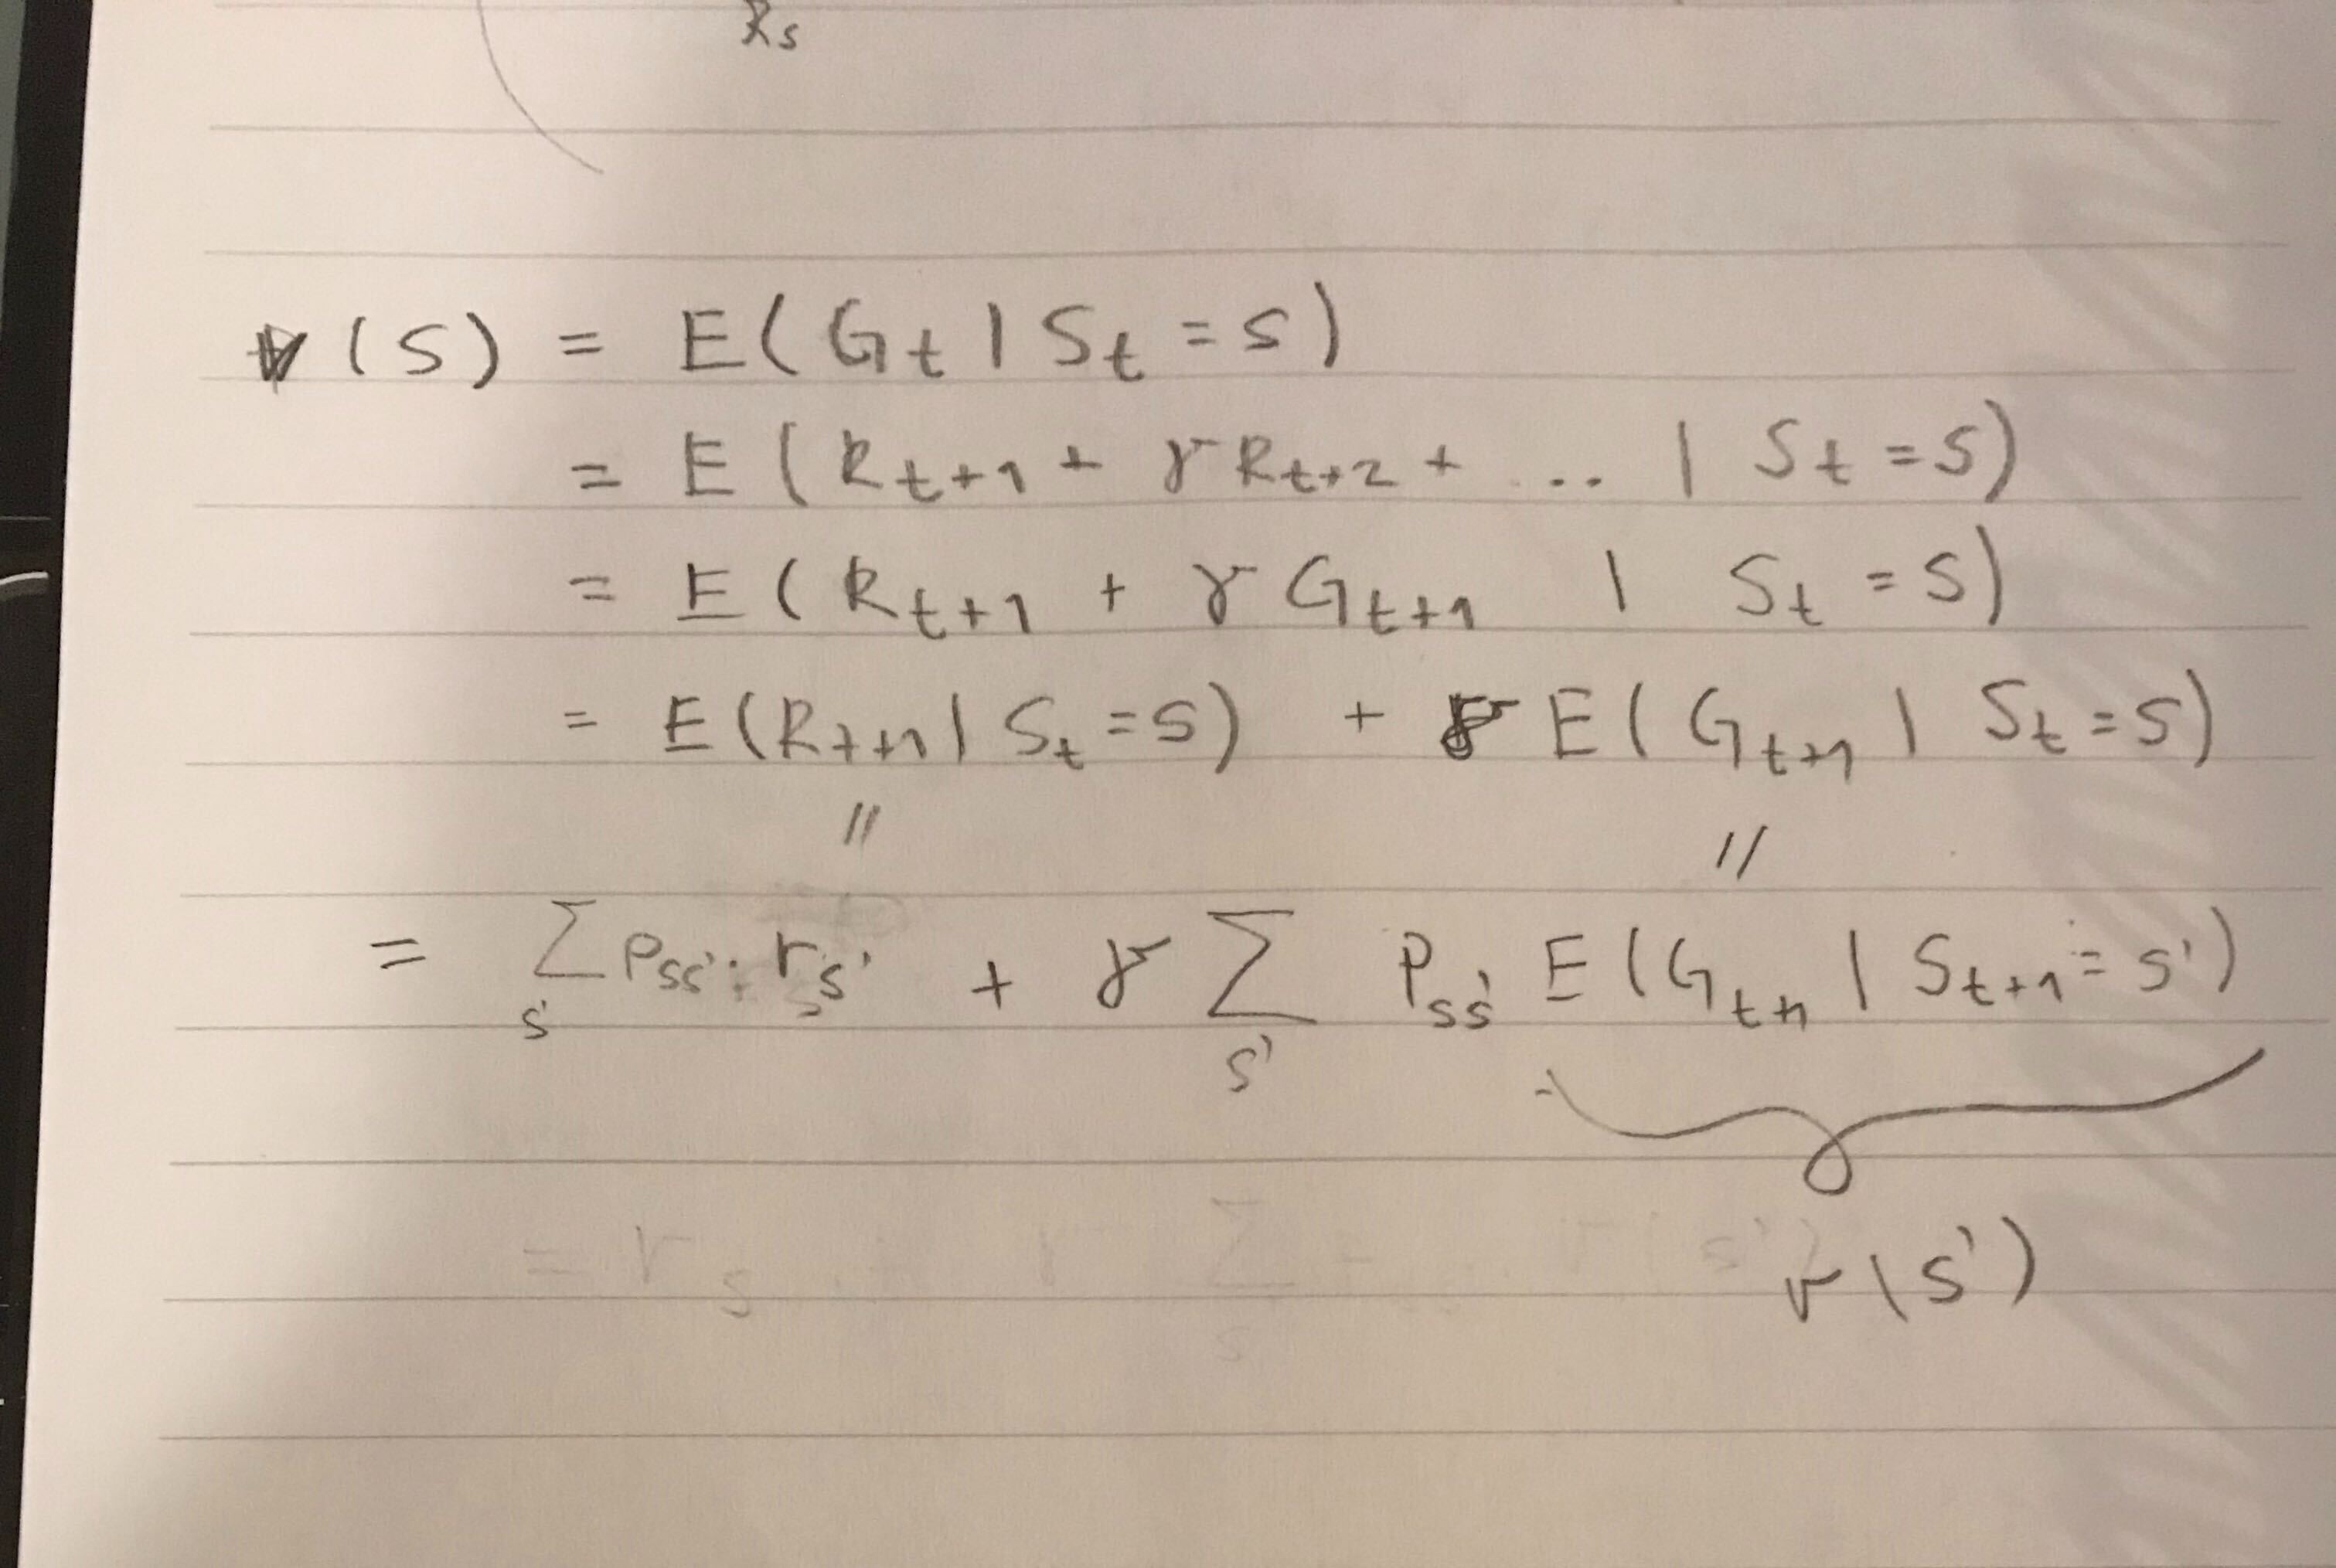 Rs
v(s) = E(Gt | St = s)
= E(Rt+1 + γRt+2 + ... | St = s)
= E(Rt+1 + γGt+1 | St = s)
= E(Rt+1 | St = s) + γE(Gt+1 | St = s)
= Σs' Pss' · rs' + γ Σs' Pss' E(Gt+1 | St+1 = s')
v(s')